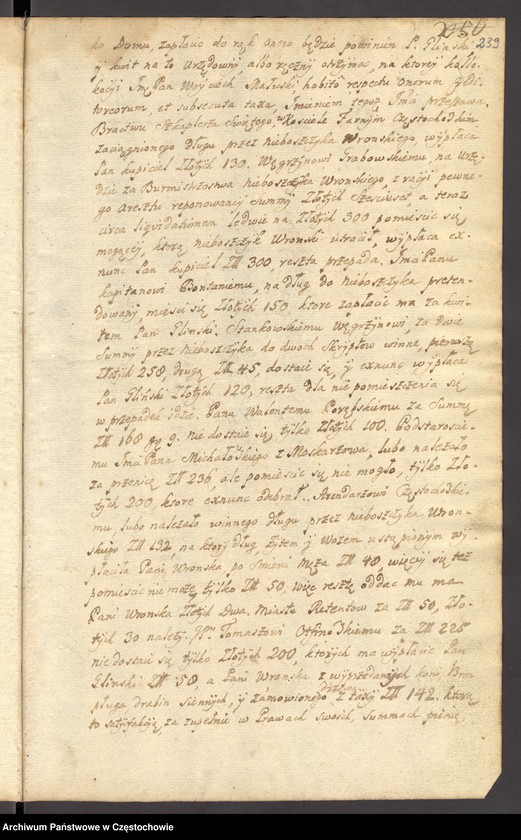 250
239
do Domu, zapłacic do rąk onego będzie powinien P. Glinski
y kwit na to Urzędowy, albo ręczny otrzymac, na ktorey kollo-
kacyi Jmć Pan Woyciech Małuski habito respectu onorum Credi-
torcorum, et subsecuta taxa, Jmieniem tegoż Jmci przestawa,
Bractwu Szkaplerza Swiętego w Kosciele Farnym Częstochowskim
zaciągnionego długu, przez nieboszczyka Wronskiego, wypłaca
Pan kupiciel Złotych 130. Węgrzynowi Grabowskiemu, na Urzę-
dzie za Burmistrzostwa nieboszczyka Wronskiego, z racyi pewne-
go aresztu reponowaney Summy Złotych Szescset, a teraz
circa liquidationem ledwie na Złotych 300 pomiescic się
mogącey, ktorą nieboszczyk Wronski utracił, wypłaca ex-
nunc Pan kupiciel Zł 300, reszta przepada. Jmć Panu
kapitanowi, na dług do nieboszczyka preten-
dowany, miesci się Złotych 150, ktore zapłacic ma za kwi-
tem Pan Glinski. Stankowskiemu Węgrzynowi za dwie
Summy przez nieboszczyka do dwoch Skryptow winne, pierwszą
Złotych 258, drugą Zł 45, dostaie się, y exnunc wypłaca
Pan Gliński Złotych 120, reszta dla niepomieszczenia się
w przepadek idzie. Panu Walentemu Porębskiemu za Summę
Zł 160 gr 9. nie dostaie się, tylko Złotych 100. Podstaroscie-
mu Jmć Pana Michałowskiego z Moskarzowa, lubo należało
za pszenicę Zł 296 ale pomiescic się nie mogło, tylko Zło-
tych 200, ktore exnunc odebrał. Arendarzowi Częstochowskie-
mu, lubo należało winnego długu przez nieboszczyka Wron-
skiego Zł 132, na ktory dług, żytem y Wozem ustąpionym wy-
płaciła Pani Wronska, po smierci Męża Zł 48, więcey się też
pomiescic nie może, tylko Zł 50, więc resztę oddac mu ma
Pani Wronska Złotych Dwa. Miastu Retentow za Zł 50, Zło-
tych 30 należy. Tomaszowi za Zł 228
nie dostaie się, tylko Złotych 200 ktorych ma wypłacic Pan
Glinski Zł 58, a Pani Wronska z wyprzedanych koni,
pługa drabin siennych, y zamowionego z Zł 142. ktorą
to satysfakcyą, za zupełnie w Prawach swoich, Summach
Archiwum Państwowe w Częstochowie